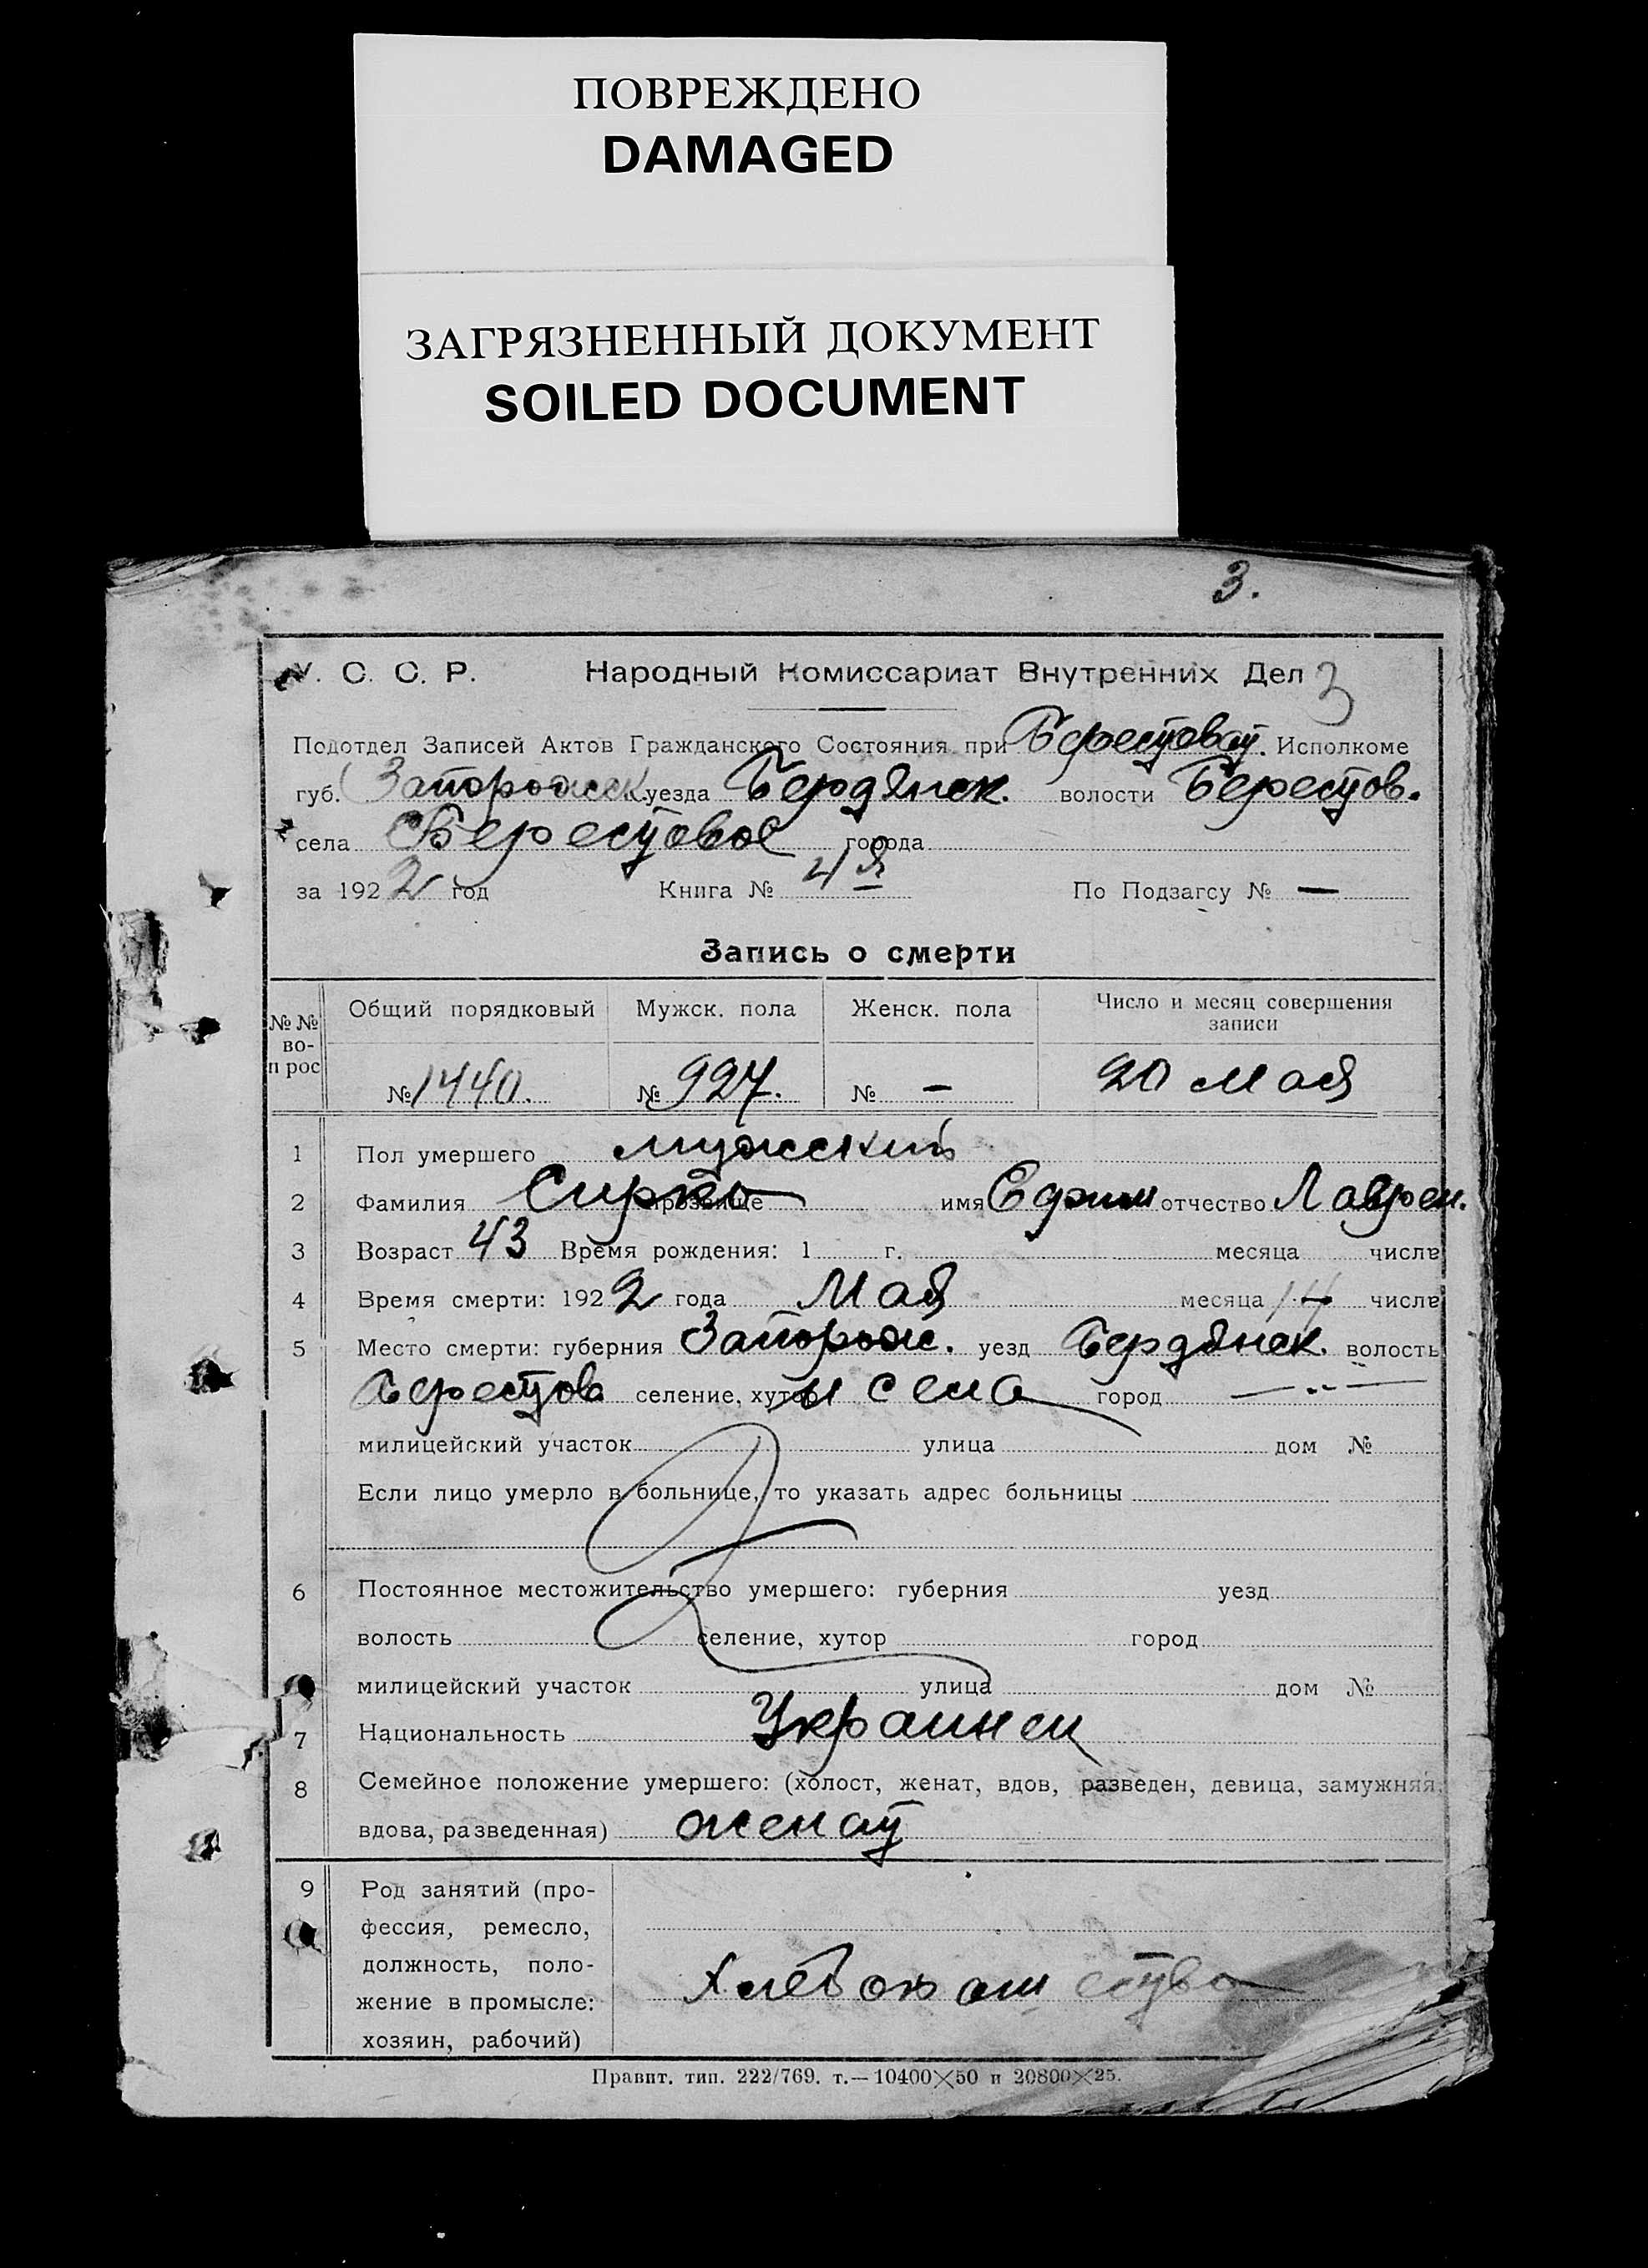 ПОВРЕЖДЕНО
DAMAGED
ЗАГРЯЗНЕННЫЙ ДОКУМЕНТ
SOILED DOCUMENT
3.
У. С. С. Р. Народный Комиссариат Внутренних Дел 3
Подотдел Записей Актов Гражданского Состояния при Берестоват. Исполкоме
губ. Запорожск уезда Бердянск. волости Берестов.
села Берестовое города
за 1922 год Книга № 4я По Подзагсу № —
Запись о смерти
№№ во-прос Общий порядковый Мужск. пола Женск. пола Число и месяц совершения записи
№ 1440. № 927. № — 20 Мая
1 Пол умершего мужский
2 Фамилия Сирко прозвище имя Ефим отчество Лаврен.
3 Возраст 43 Время рождения: 1 г. месяца числа
4 Время смерти: 1922 года Мая месяца числа
5 Место смерти: губерния Запорож. уезд Бердянск. волость
Берестов селение, хутор села город —
милицейский участок улица дом №
Если лицо умерло в больнице, то указать адрес больницы
6 Постоянное местожительство умершего: губерния уезд
волость селение, хутор город
милицейский участок улица дом №
7 Национальность Украинец
8 Семейное положение умершего: (холост, женат, вдов, разведен, девица, замужняя,
вдова, разведенная) женат
9 Род занятий (про-
фессия, ремесло,
должность, поло-
жение в промысле: Хлебопашество
хозяин, рабочий)
Правит. тип. 222/769. т.—10400×50 и 20800×25.